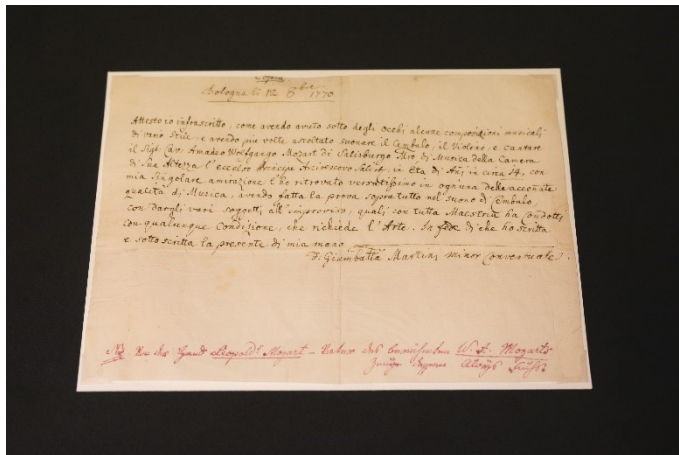 Bologna li 12 8bre 1770
Attesto io infrascritto, come avendo avuto sotto degli occhi alcune composizioni musicali
di vario stile, e avendo più volte ascoltato suonare il Cembalo, il Violino, e cantare
il Sigr. Cav. Amadeo Wolfgango Mozart di Salisburgo Mro. di Musica della Camera
di Sua Altezza l'eccelso Principe Arcivescovo Salisb. in età di Anj in circa 14, con
mia singolare amirazione l'ho ritrovato versatissimo in ognuna delle accennate
qualità di Musica, avendo fatta la prova sopra tutto nel suono di Cembalo,
con dargli varj soggetti all'improviso, quali con tutta Maestria ha condotti
con qualunque condizione, che richiede l'Arte. In fede di che ho scritta
e sotto scritta la presente di mia mano
F. Giambatta Martini minor Conventuale.
Von der Hand Leopold Mozart – Vaters des W. A. Mozarts
Aloys Fuchs